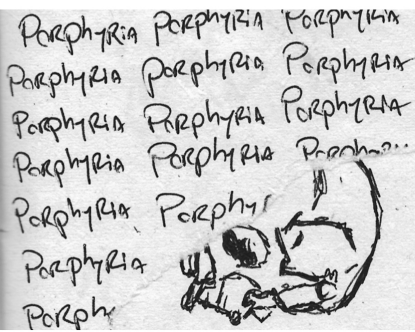 PORPHYRIA PORPHYRIA PORPHYRIA
PORPHYRIA PORPHYRIA PORPHYRIA
PORPHYRIA PORPHYRIA PORPHYRIA
PORPHYRIA PORPHYRIA PORPHYRI
PORPHYRIA PORPHY
PORPHYRIA
PORPH